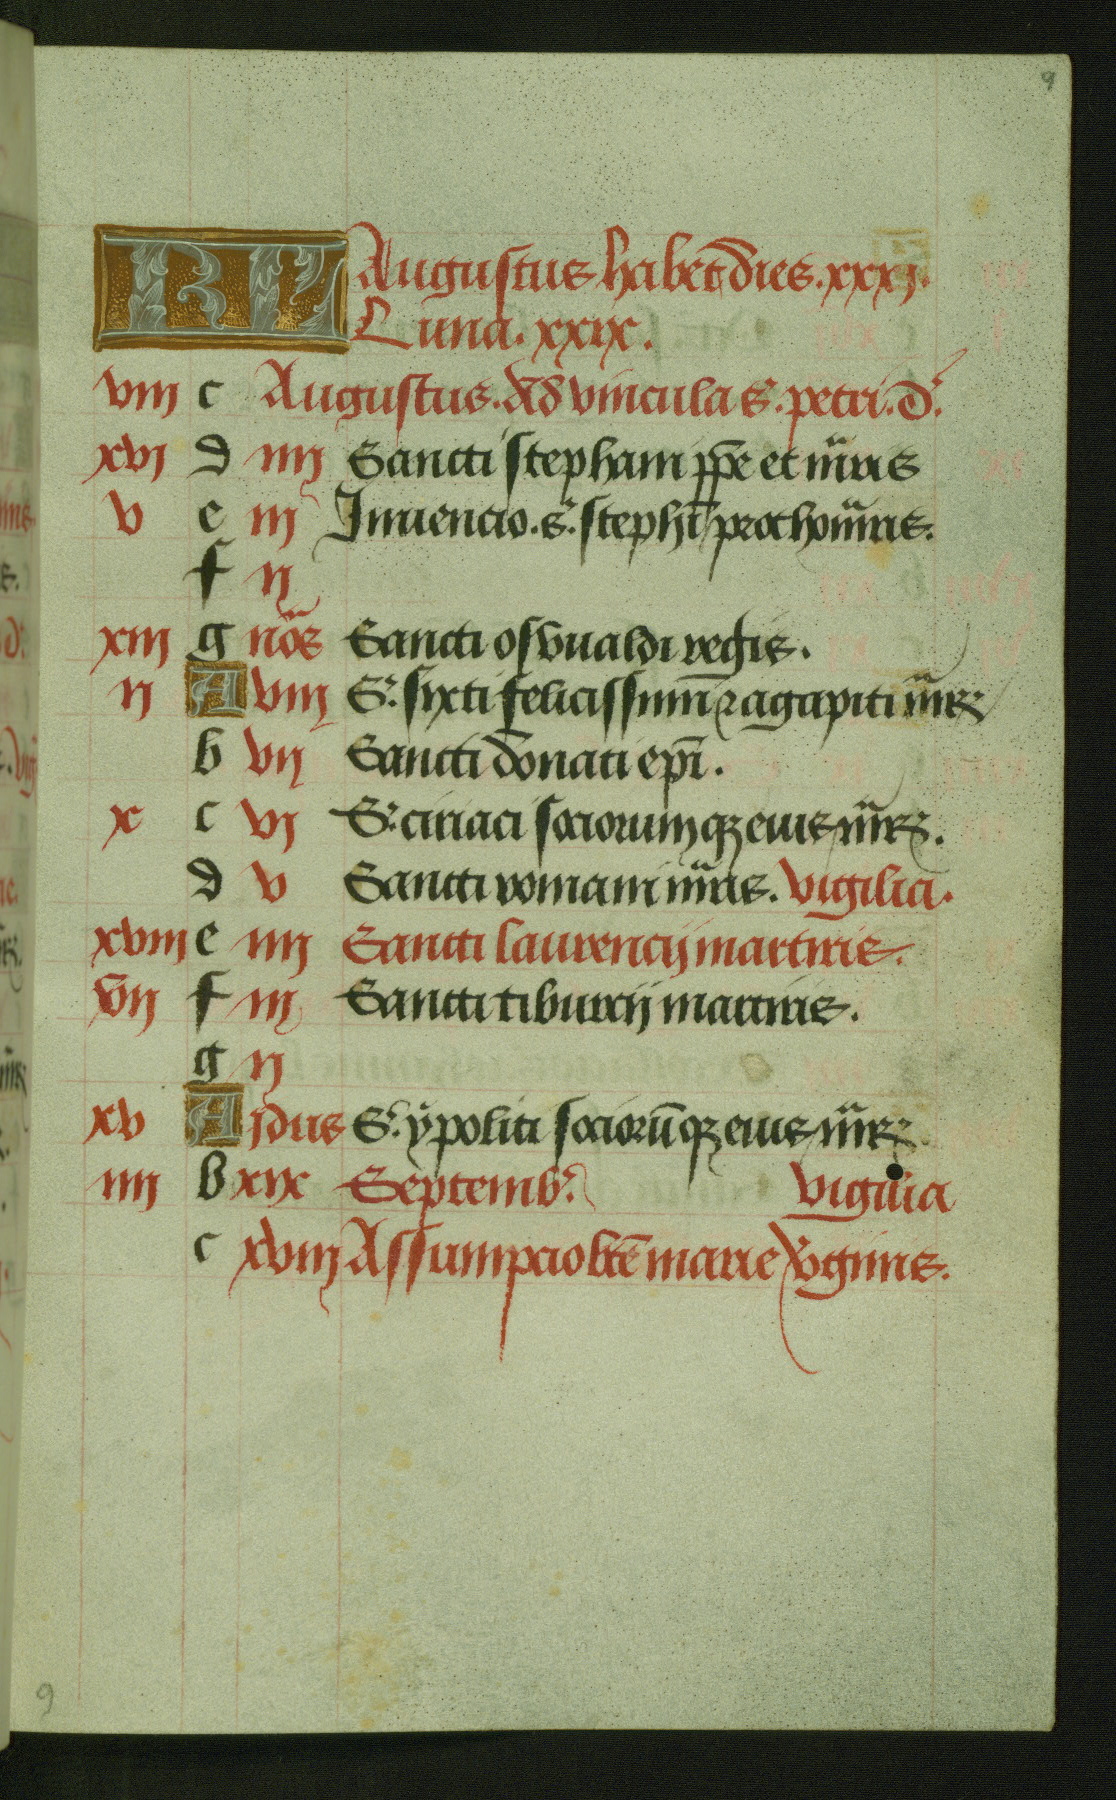 9
KL Augustus habet dies .xxxj.
Luna .xxix.
viii c Augustus. Ad vincula s. petri. d.
xvi d iiij Sancti stephani ppe et mris
v e iij Inuencio .s. stephi prothomris.
f ij
xiii g nos Sancti osvualdi regis.
ij A viij S. sixti felicissimi ⁊ agapiti mr
b vij Sancti donati epi.
x c vi S. ciriaci sociorumqz eius mr.
d v Sancti romani mris. vigilia.
xviii e iiij Sancti laurencij martiris.
vij f iij Sancti tiburcij martiris.
g ij
xv A idus S. ypoliti sociorūqz eius mr
iiij b xix Septemb. vigilia
c xviij Assumpcio bte marie virginis.
9